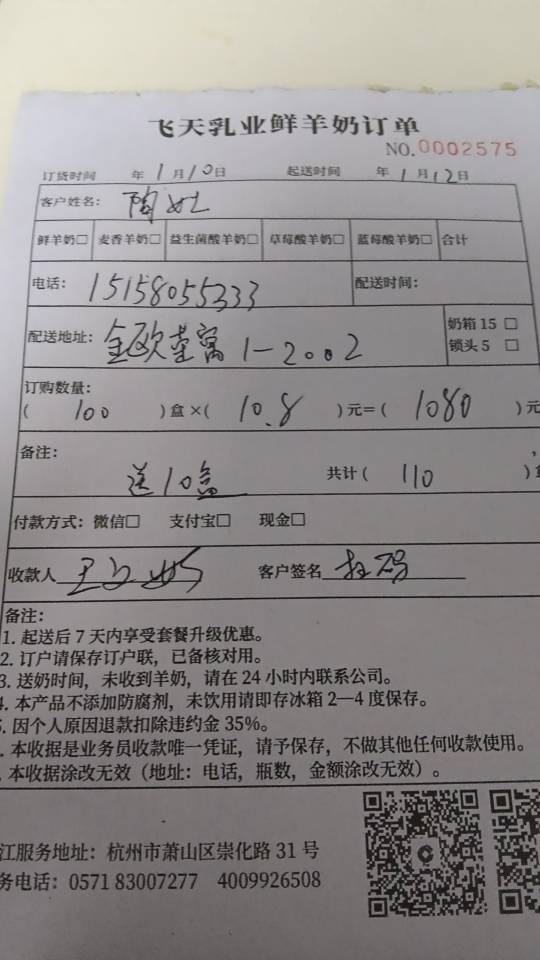 飞天乳业鲜羊奶订单
NO.0002575
订货时间 年1月10日 起送时间 年1月12日
客户姓名: 陶
鲜羊奶□ 麦香羊奶□ 益生菌酸羊奶□ 草莓酸羊奶□ 蓝莓酸羊奶□ 合计
电话: 15158055333 配送时间:
配送地址: 金欧莲寓1-2002 奶箱 15 □
锁头 5 □
订购数量:
( 100 )盒×( 10.8 )元=( 1080 )元
备注:
送10盒 共计( 110 )
付款方式: 微信□ 支付宝□ 现金□
收款人 客户签名 扫码
备注:
1. 起送后 7 天内享受套餐升级优惠。
2. 订户请保存订户联，已备核对用。
3. 送奶时间，未收到羊奶，请在 24 小时内联系公司。
4. 本产品不添加防腐剂，未饮用请即存冰箱 2—4 度保存。
. 因个人原因退款扣除违约金 35%。
. 本收据是业务员收款唯一凭证，请予保存，不做其他任何收款使用。
. 本收据涂改无效（地址：电话，瓶数，金额涂改无效）。
江服务地址：杭州市萧山区崇化路 31 号
务电话：0571 83007277 4009926508